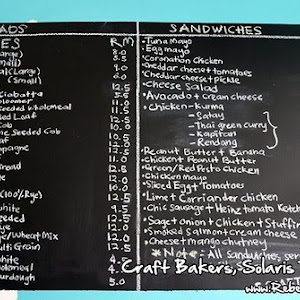 ADS SANDWICHES
ES RM
Large) 8.0
Small) 5.5
al(Large)
(Small)
Ciabatta
Bloomer
Seeded wholemeal 11.0
ed Loaf
Cob
ne Seeded Cob
oaf
mpagne
(100% Rye) 12.0
white
eeded
ye
e/Wheat Mix
ulti Grain
white
holemeal
urdough 5.0
Tuna Mayo
Egg mayo
Coronation Chicken
Cheddar cheese + tomatoes
Cheddar cheese + pickle
Cheese Salad
Avocado + cream cheese
Chicken - Kurma
- Satay
- Thai green curry
- Kapitan
- Rendang
Peanut Butter + Banana
Chicken + Peanut Butter
Green/Red Pesto Chicken
Chicken mayo
Sliced Egg + Tomatoes
Lime + Corriander chicken
Chic Sausage + Heinz tomato Ketch
Sage + onion + Chicken + Stuffin
Smoked salmon + cream cheese
Cheese + mango chutney
* Note: All sandwiches, ser
Craft Bakers, Solaris
www.Rebe